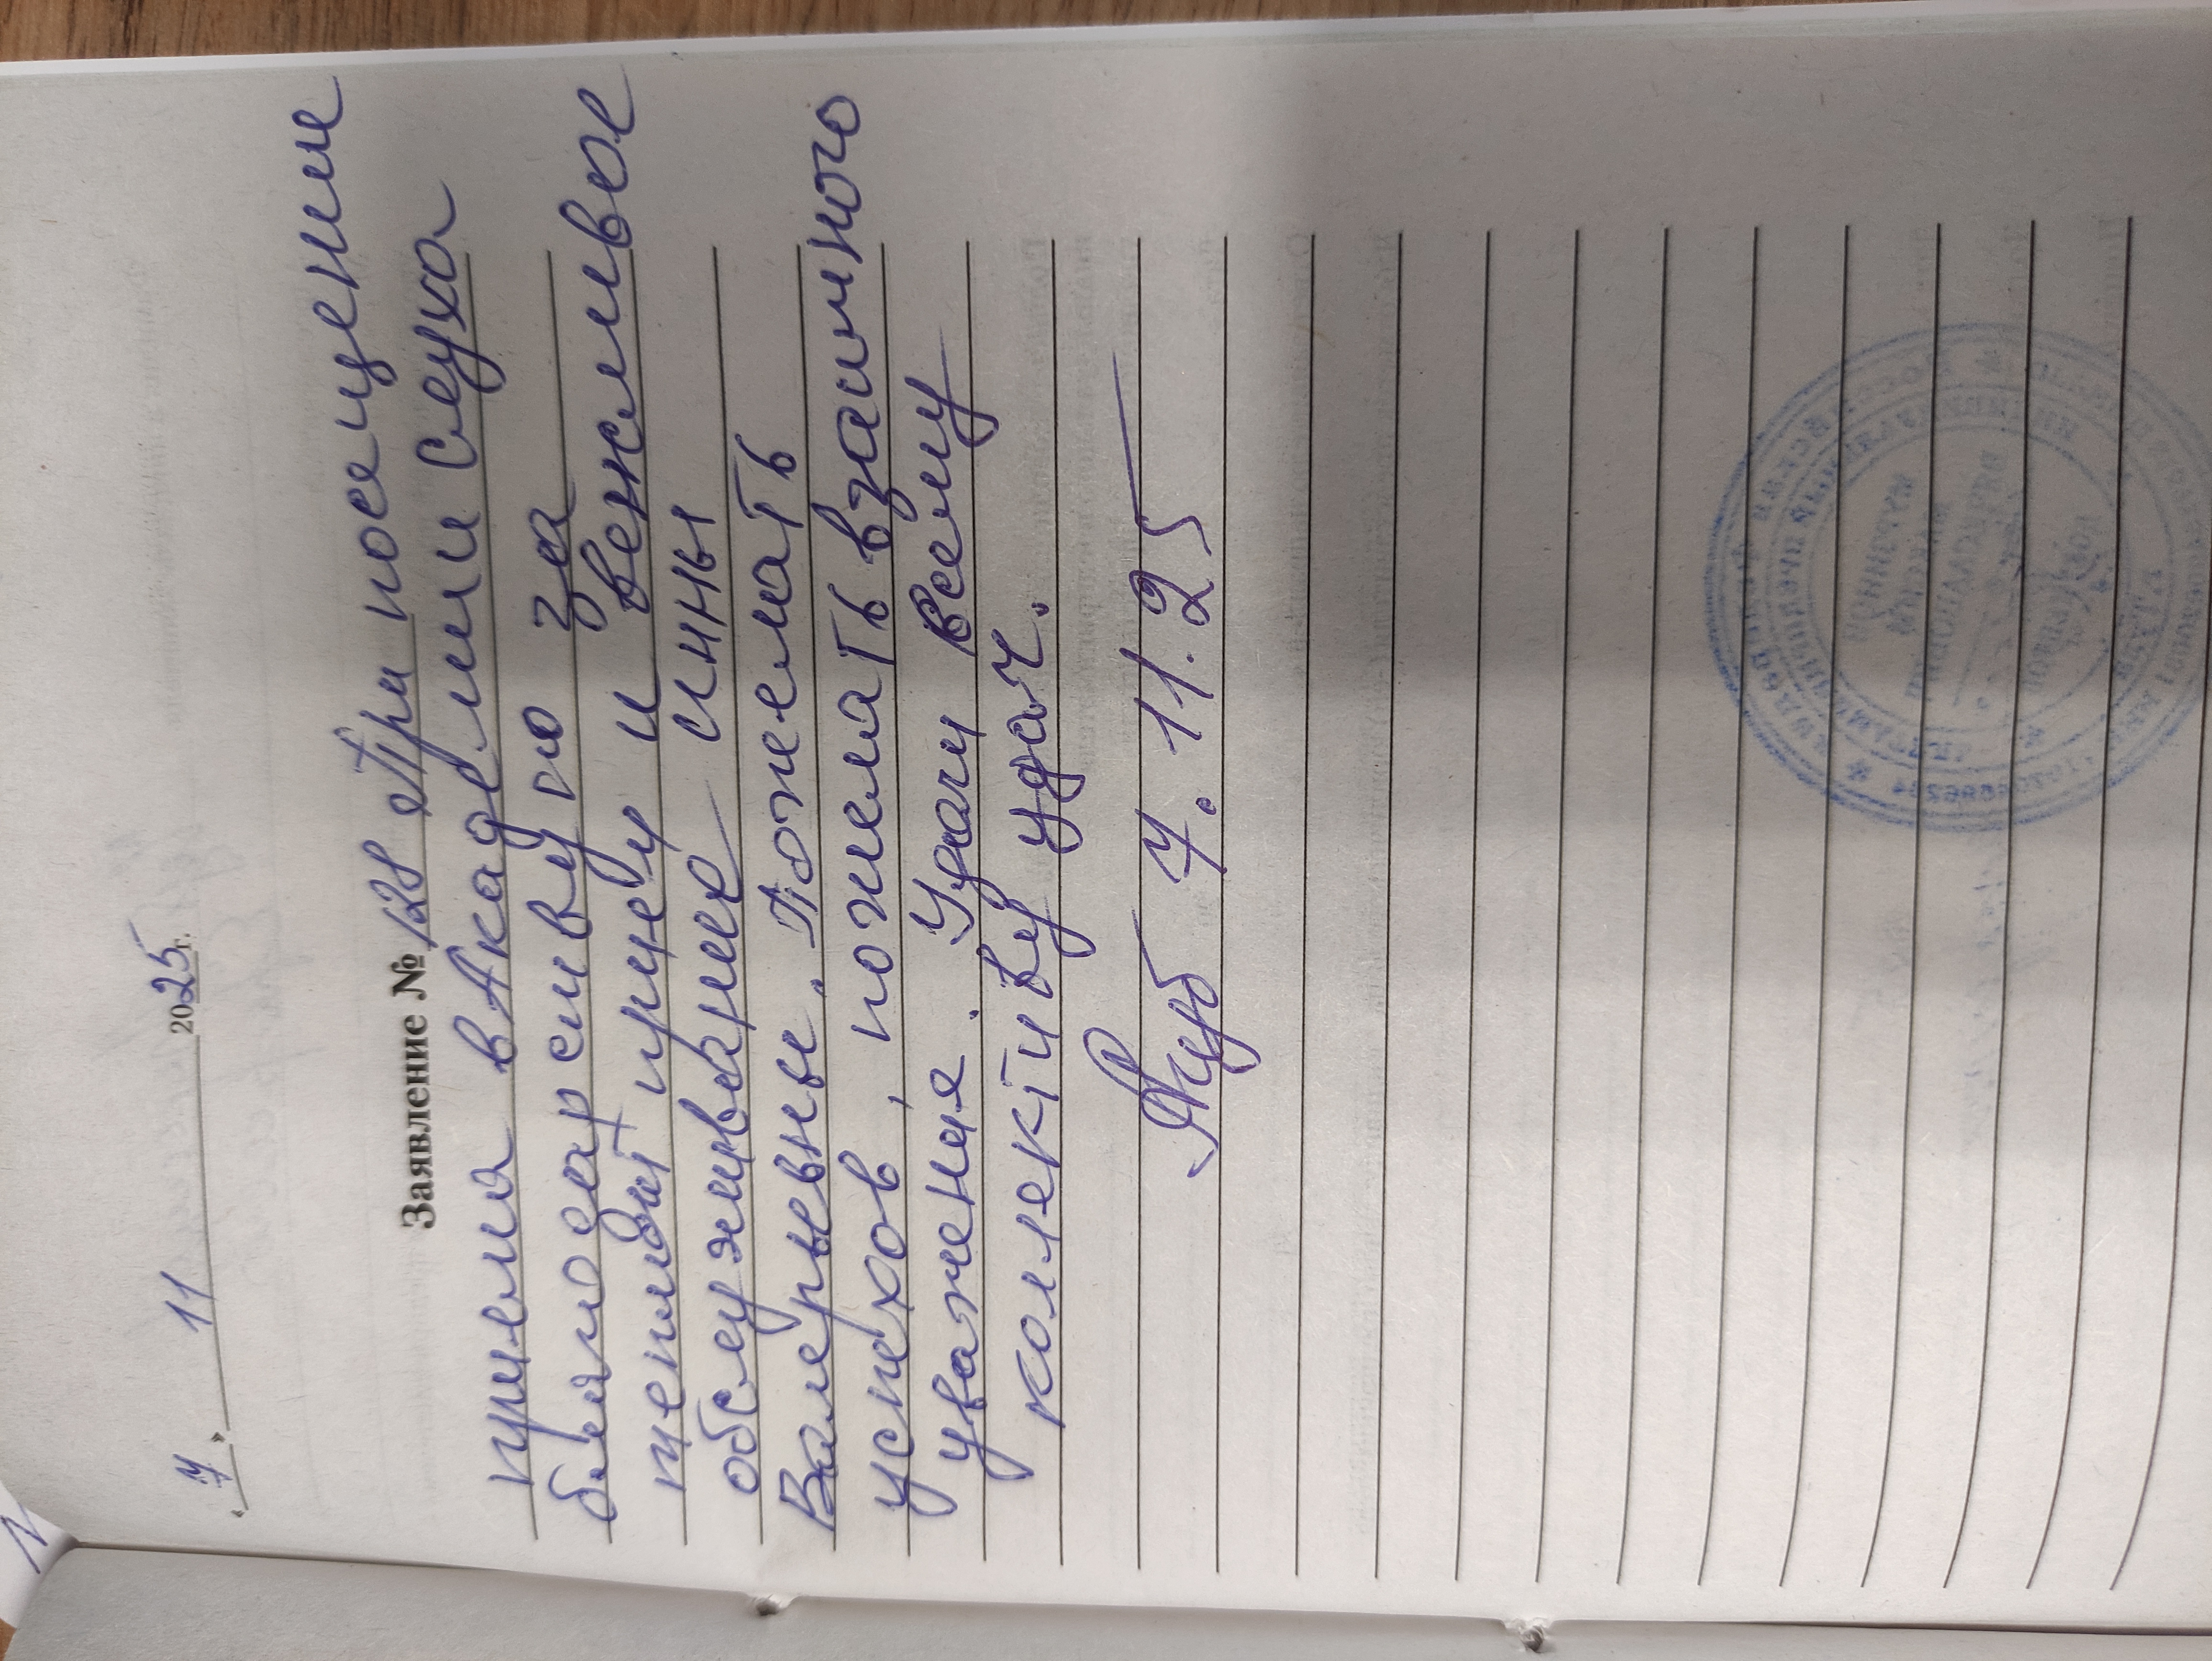 «7.» 11 2025г.
Заявление № 128 При посещении
приема в Академии Слуха
благодарствую за
теплой прием и вежливое
обслуживание инны
Валерьевны. Пожелать
успехов, пожелать взаимного
уважения. Удачи всему
коллективу удач.
7.11.25